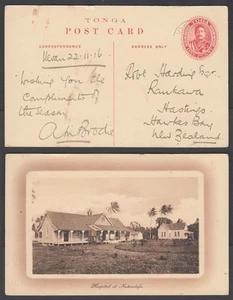 TONGA
POST CARD
CORRESPONDENCE
ADDRESS ONLY
TONGA
22-11-16
Wishing you the
Compliments of
the season
Robt Harding Esq.
Raukawa
Hastings
Hawkes Bay
New Zealand
Hospital at Nukualofa